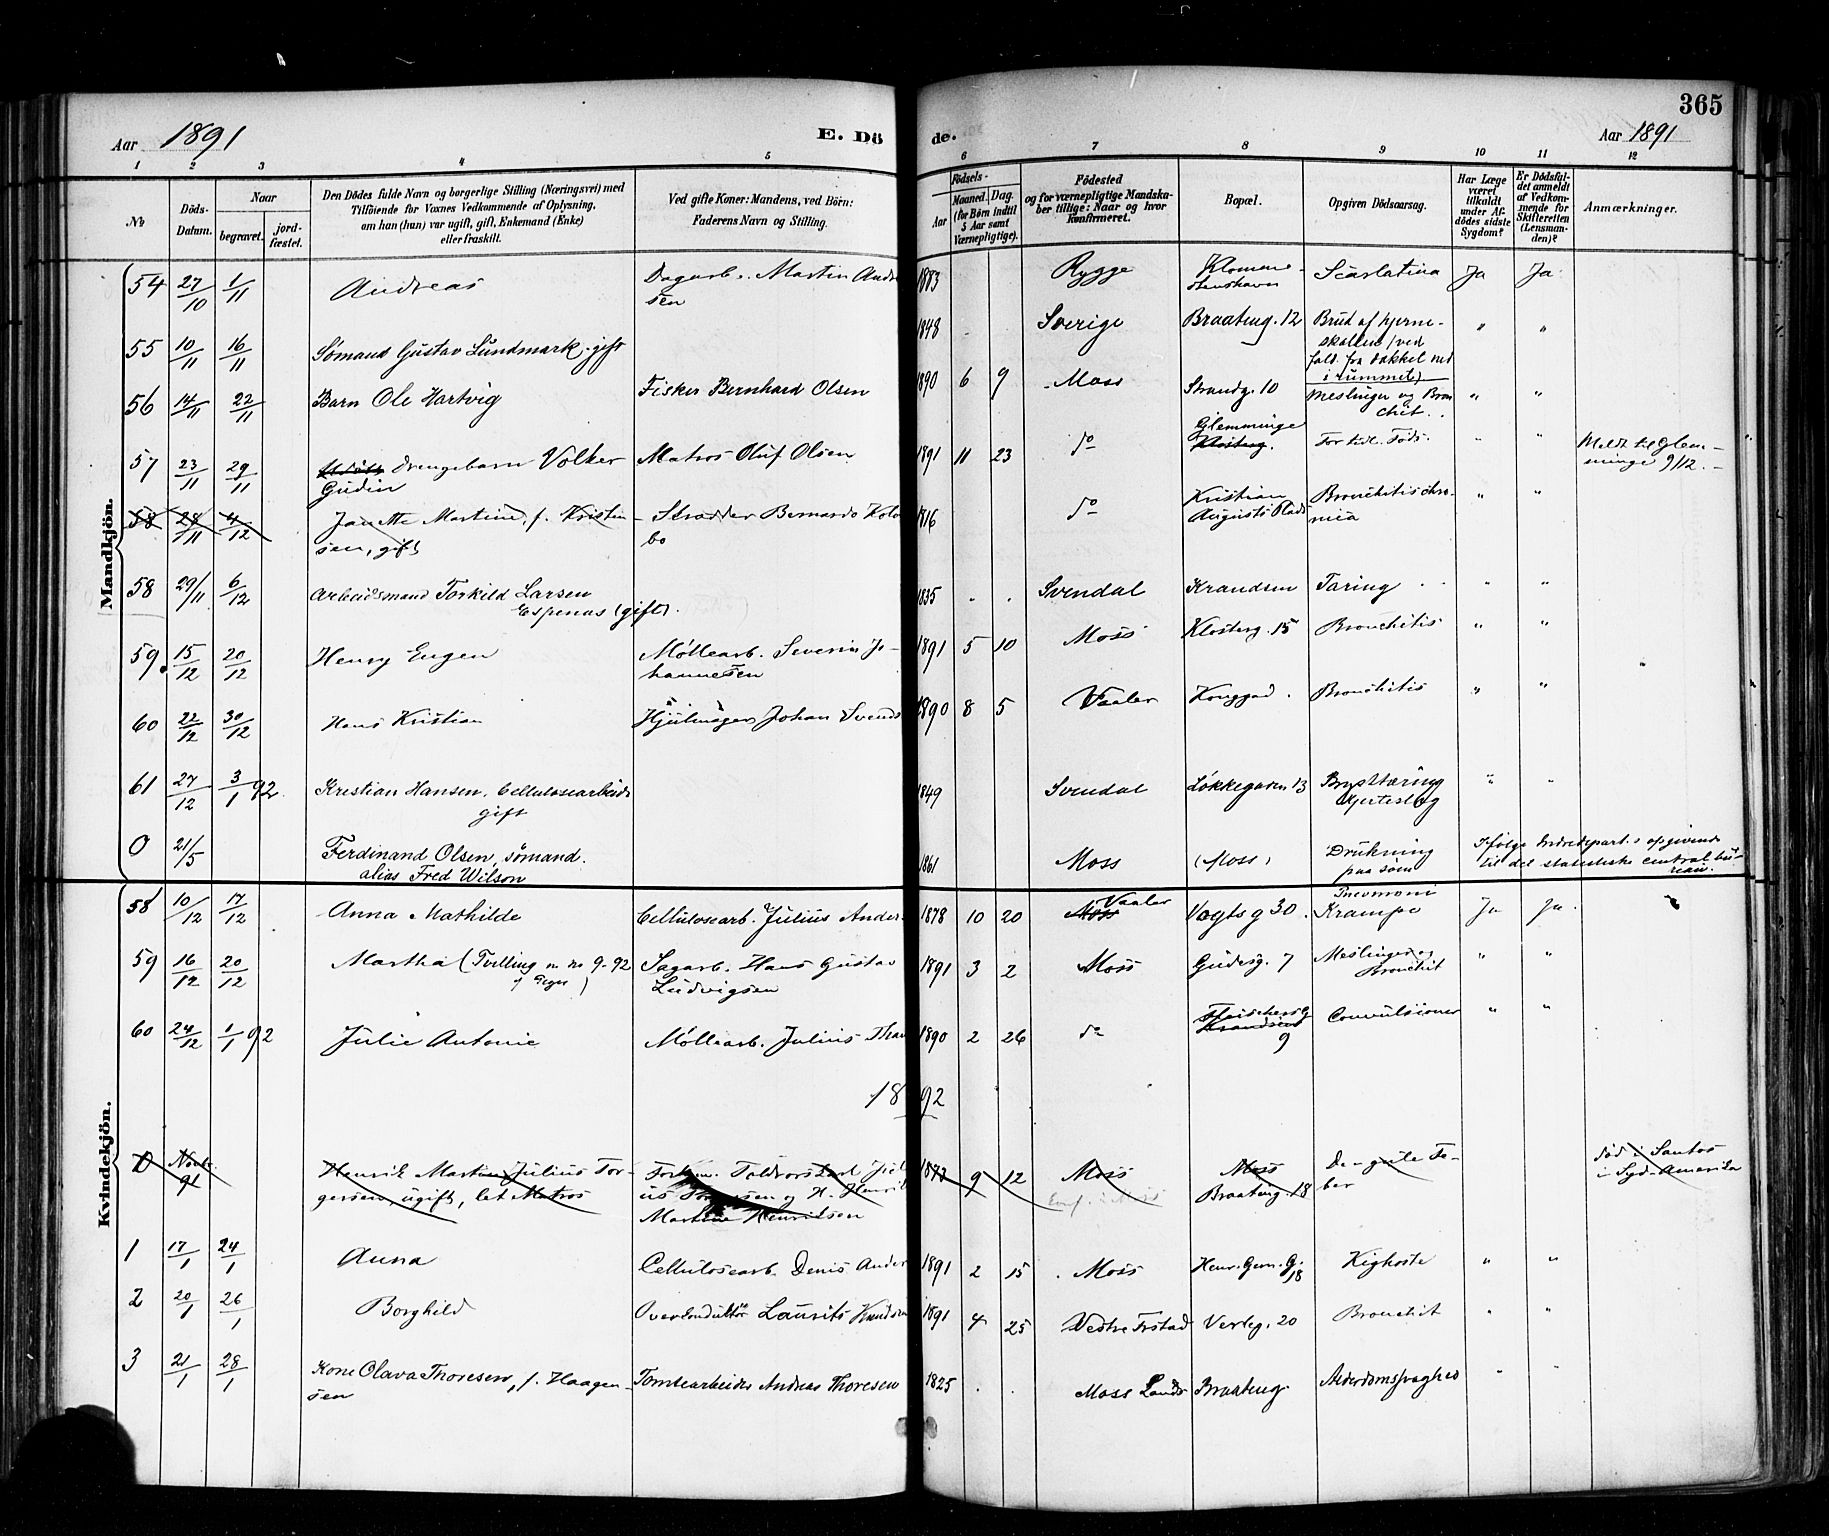 365
Aar 1891
E. Dö
de.
Aar 1891
1 2 3 4 5 6 7 8 9 10 11 12
No
Döds-
Datum.
Naar
begravet.
jord-
fæstet.
Den Dödes fulde Navn og borgerlige Stilling (Næringsvei) med
Tilföiende for Voxnes Vedkommende af Oplysning,
om han (hun) var ugift, gift, Enkemand (Enke)
eller fraskilt.
Ved gifte Koner: Mandens, ved Börn:
Faderens Navn og Stilling.
Födsels-
Aar
Maaned.
Dag.
(for Börn indtil
5 Aar samt
Værnepligtige).
Födested
og for værnepligtige Mandska-
ber tillige: Naar og hvor
konfirmeret.
Bopæl.
Opgiven Dödsaarsag.
Har Læge
været
tilkaldt
under Af-
dödes sidste
Sygdom?
Er Dödsfal-
det anmeldt
af Vedkom-
mende for
Skifteretten
(Lensman-
den)?
Anmærkninger.
Mandkjön.
54 27/10 1/11 Andreas Dagarb. Martin Andre 1883 Rygge Scarlatina Ja Ja
sen
55 10/11 16/11 Sømand Gustav Lundmark, gift 1848 Sverige Braateng. 12 Brud af hjerne-
skallen (ved
fald fra dækket ned
i rummet)
56 14/11 22/11 Barn Ole Hartvig Fisker Bernhard Olsen 1890 6 9 Moss Strandg. 10 Meslinger og Bron
chit.
57 23/11 29/11 Drengebarn Volker Matros Oluf Olsen 1891 11 23 do Glemminge For tidl. Føds. Meldt til Glem-
Gudin Klosterg. minge 9/12.
58 28/11 4/12 Janette Martine, f. Kristen- Bernardo Kolo 1816 do Kristian Bronchitis chro-
sen, gift bo Augusts Plads nica
58 29/11 6/12 Arbeidsmand Torkild Larsen 1835 Svendal Krandsen Tæring
Espenas (gift).
59 15/12 20/12 Henry Eugen Møllearb. Severin Jo- 1891 5 10 Moss Klosterg. 15 Bronchitis
hannesen
60 22/12 30/12 Hans Kristian Hjulmager Johan Svends 1890 8 5 Vaaler Kongegad. Bronchitis
61 27/12 3/1 92. Kristian Hansen, Cellulosearbeider 1849 Svendal Løkkegaden 13 Brysttæring
gift Hjerteslag
0 21/5 Ferdinand Olsen, sømand. 1861 Moss (Moss) Drukning Ifølge Indredepart.s opgivende
alias Fred Wilson paa søen til det statistiske central bu-
reau.
Kvindekjön.
58 10/12 17/12 Anna Mathilde Cellulosearb. Julius Ander- 1878 10 20 Moss Vaaler Vogtsg 30. Pnevmoni Ja Ja
Krampe
59 16/12 20/12 Martha (Tvilling m no 9-92 Sagarb. Hans Gustav 1891 3 2 Moss Gudesg. 7 Meslinger og
Ludvigsen Bronchit
60 24/12 1/1 92 Julie Antonie Møllearb. Julius Than 1890 2 26 do Fleischersg Convulsioner
Krandsen
9
1892
0 Novbr. Henrik Martin Julius Tor- 1873 9 12 Moss Moss De gule Fe- død i Santos
91 gersen, ugift, let Matros Braateng. 18 ber i Syd-Amerika
Martine Henriksen
1 17/1 24/1 Anna Cellulosearb. Denis Ander 1891 2 15 Moss Henr. Gern. G. Kighoste
18
2 20/1 26/1 Borghild Overkonduktør Laurits Knudsen 1891 4 25 Vestre Frstad Verleg. 20 Bronchit
3 21/1 28/1 Kone Olava Thoresen, f. Haagen- Tomtearbeider Andreas Thoresen 1825 Moss Lands Braateng. Alderdomssvaghed
sen